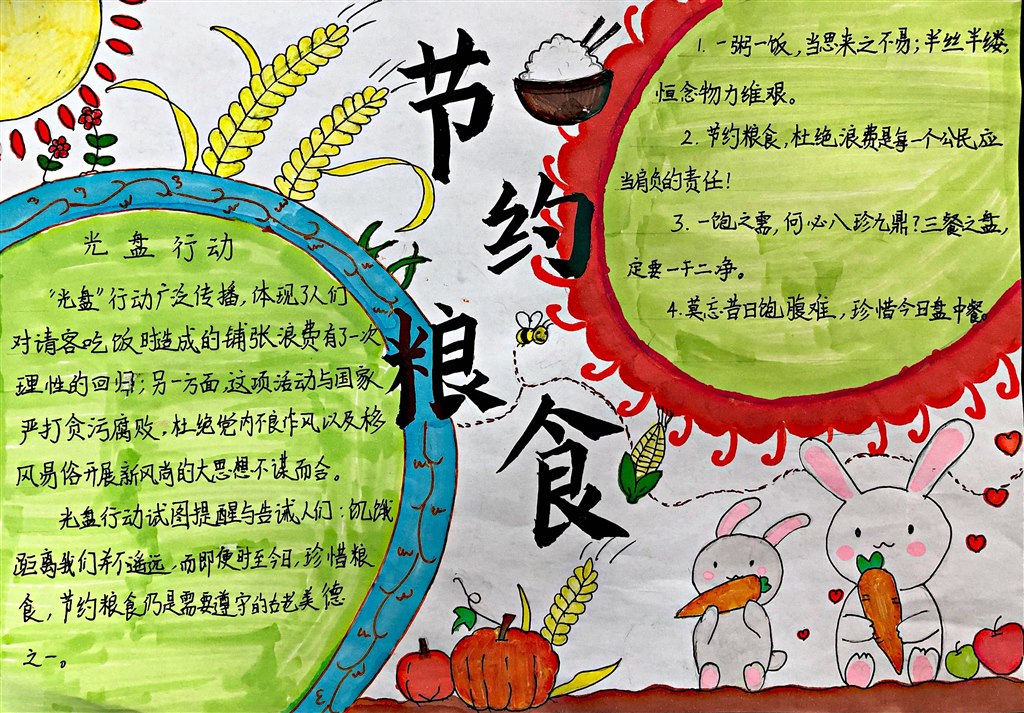 节约粮食
光盘行动
"光盘"行动广泛传播，体现了人们
对请客吃饭时造成的铺张浪费有了一次
理性的回归；另一方面，这项活动与国家
严打贪污腐败，杜绝党内不良作风以及移
风易俗开展新风尚的大思想不谋而合。
光盘行动试图提醒与告诫人们：饥饿
距离我们并不遥远，而即便时至今日，珍惜粮
食，节约粮食仍是需要遵守的古老美德
之一。
1. 一粥一饭，当思来之不易；半丝半缕，
恒念物力维艰。
2. 节约粮食，杜绝浪费是每一个公民应
当肩负的责任！
3. 一饱之需，何必八珍九鼎？三餐之盘，
定要一干二净。
4. 莫忘昔日饱腹难，珍惜今日盘中餐。